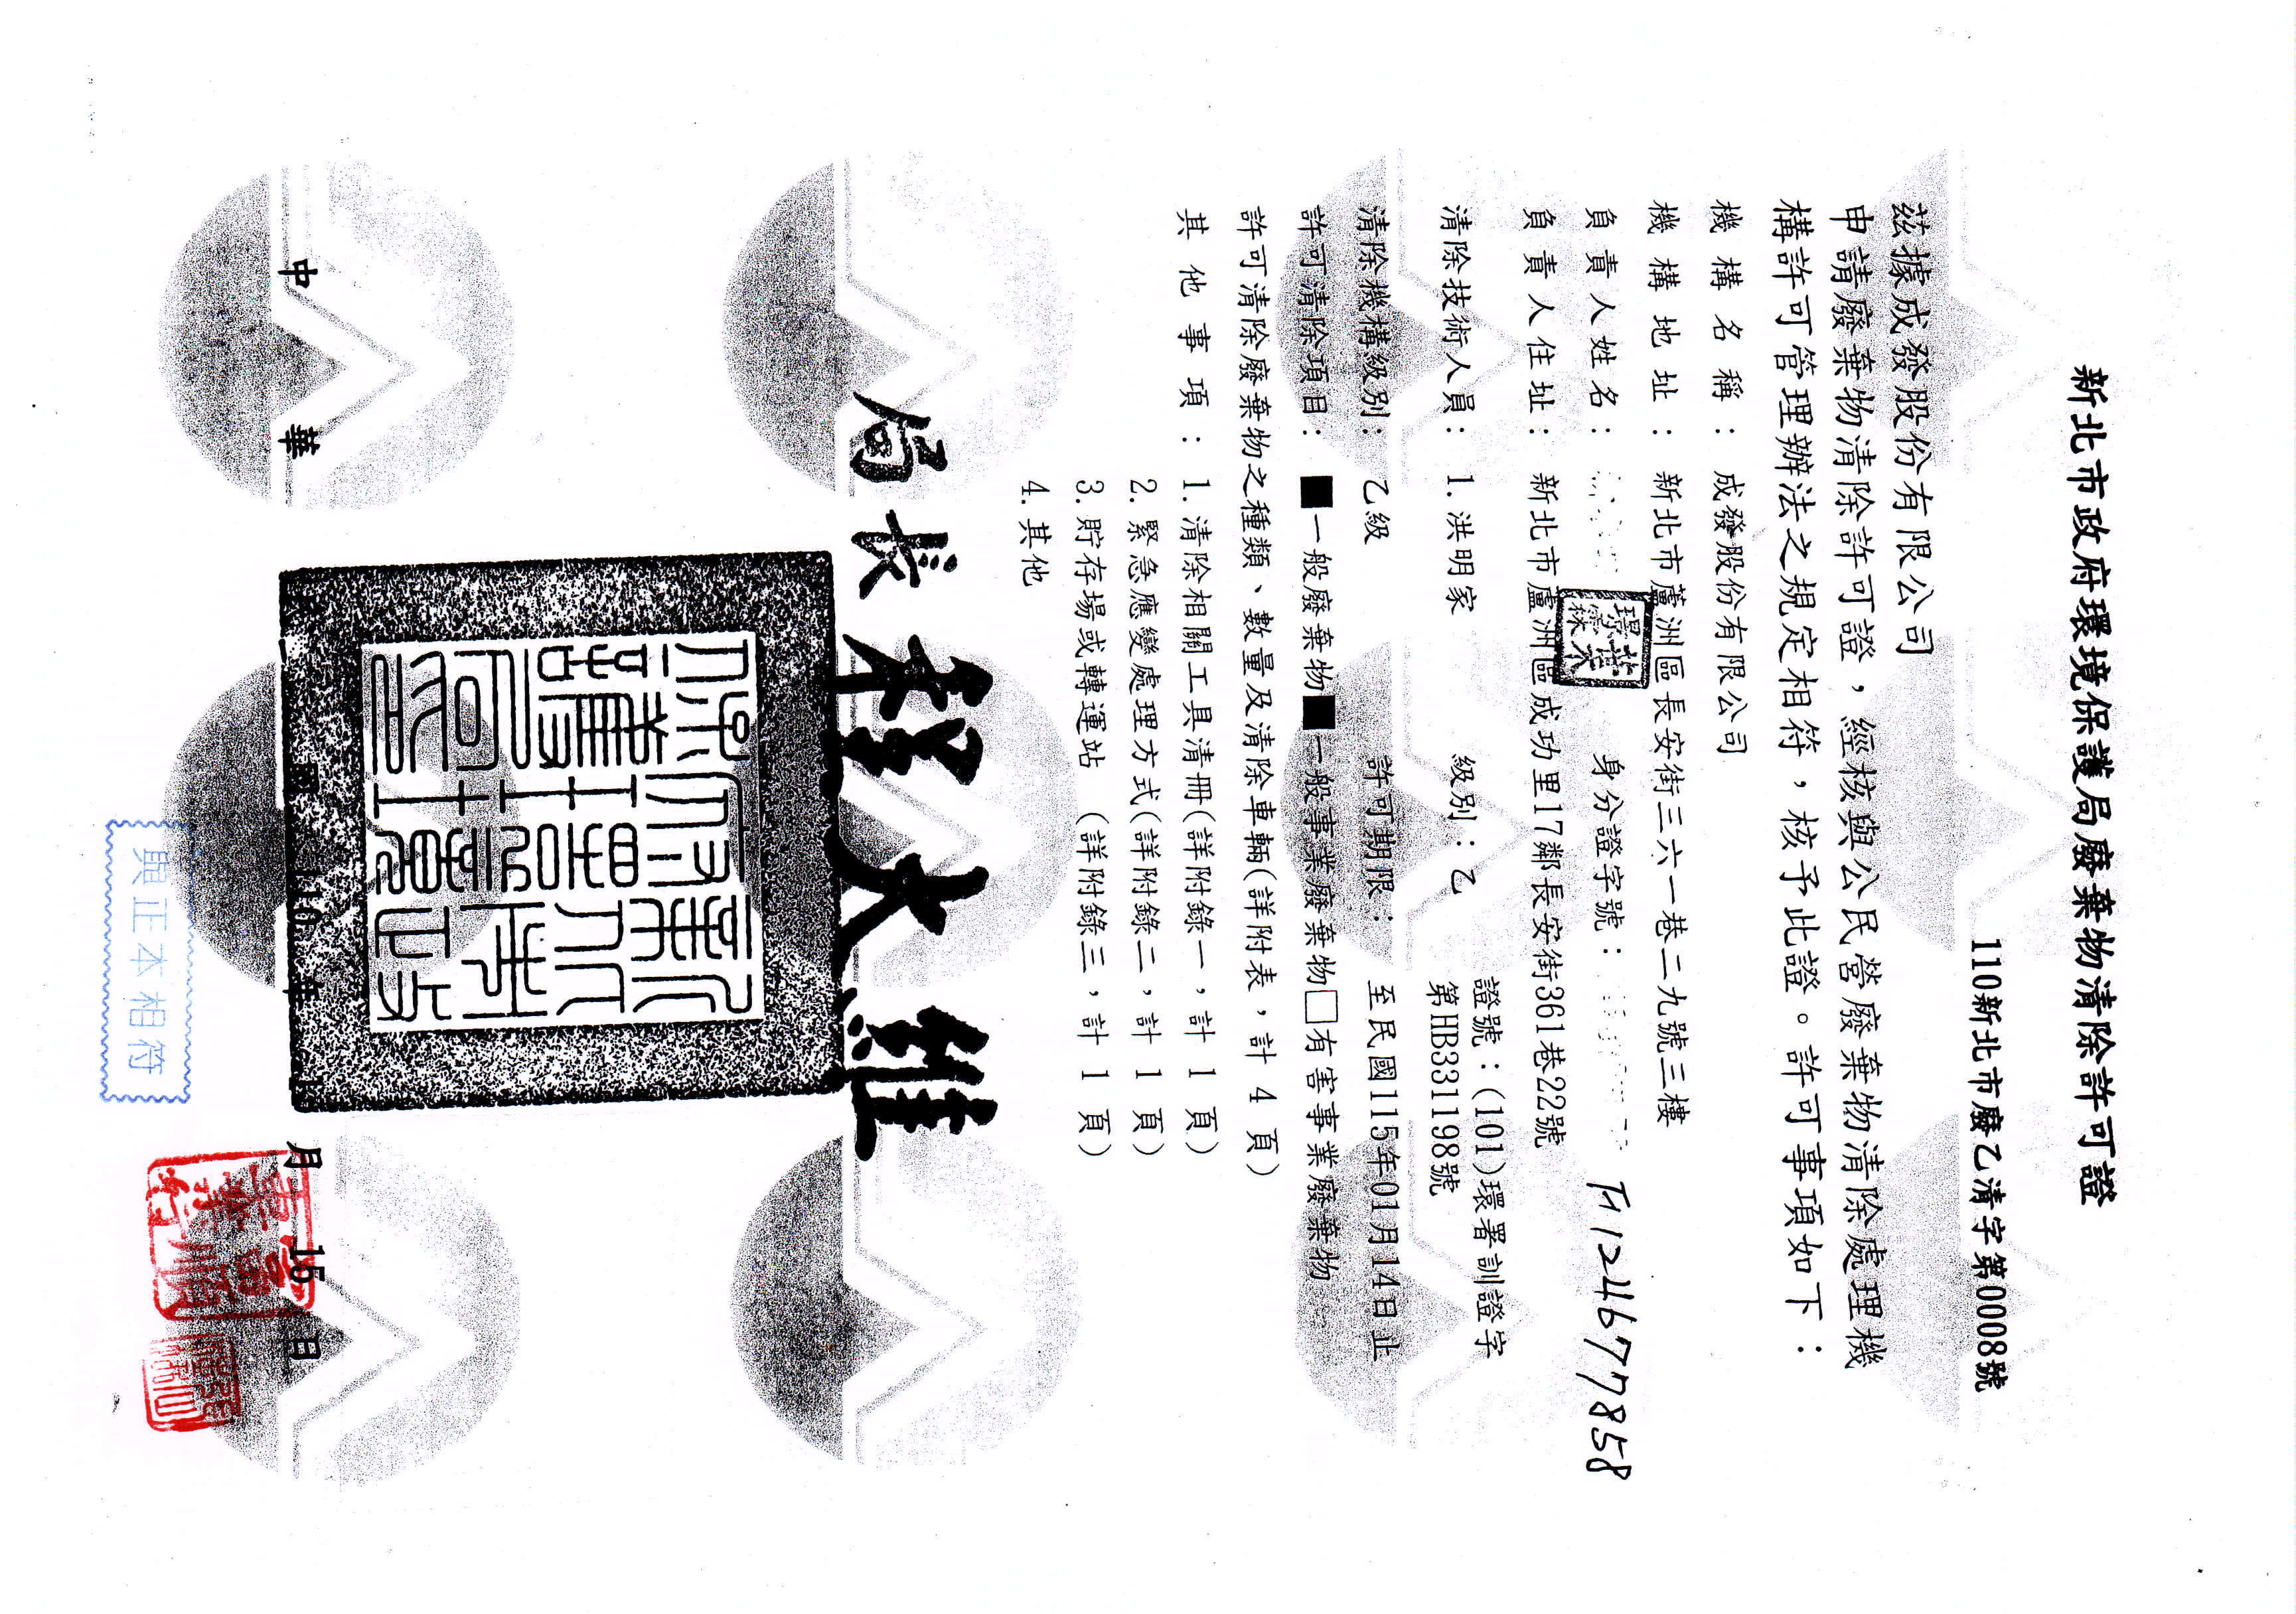 新北市政府環境保護局廢棄物清除許可證
110新北市廢乙清字第00008號
茲據成發股份有限公司
申請廢棄物清除許可證，經核與公民營廢棄物清除處理機
構許可管理辦法之規定相符，核予此證。許可事項如下：
機構名稱：成發股份有限公司
機構地址：新北市蘆洲區長安街三六一巷二九號三樓
負責人姓名： 身分證字號：
負責人住址：新北市蘆洲區成功里17鄰長安街361巷22號
清除技術人員：1.洪明家 級別：乙 證號：(101)環署訓證字
第HB331198號
清除機構級別：乙級 許可期限：至民國115年01月14日止
許可清除項目：■一般廢棄物■一般事業廢棄物□有害事業廢棄物
許可清除廢棄物之種類、數量及清除車輛(詳附表，計 4 頁)
其他事項：1.清除相關工具清冊(詳附錄一，計 1 頁)
2.緊急應變處理方式(詳附錄二，計 1 頁)
3.貯存場或轉運站 (詳附錄三，計 1 頁)
4.其他
局長 程大維
中華 國 110 年 月 15 日
與正本相符